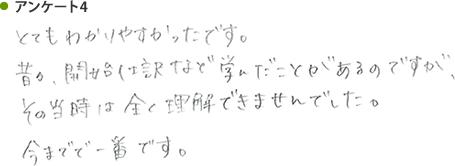 アンケート4
とてもわかりやすかったです。
昔、開始仕訳など学んだことがあるのですが、
その当時は全く理解できませんでした。
今までで一番です。